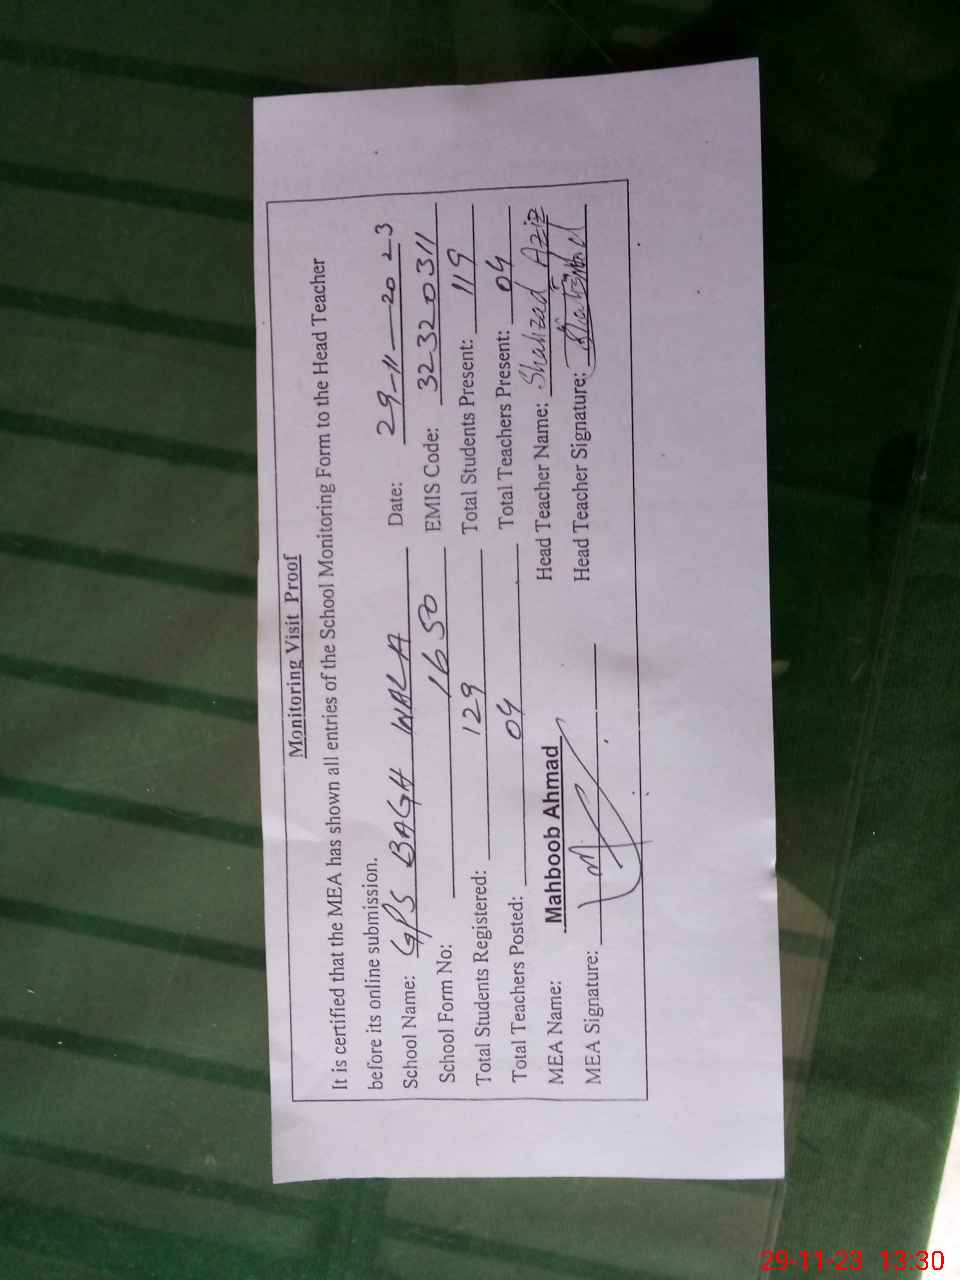 Monitoring Visit Proof
It is certified that the MEA has shown all entries of the School Monitoring Form to the Head Teacher
before its online submission.
School Name: GPS BAGH WALA Date: 29-11-2023
School Form No: 1650 EMIS Code: 32320311
Total Students Registered: 129 Total Students Present: 119
Total Teachers Posted: 04 Total Teachers Present: 04
MEA Name: Mahboob Ahmad Head Teacher Name: Shahzad Aziz
MEA Signature: Head Teacher Signature:
29-11-23 13:30